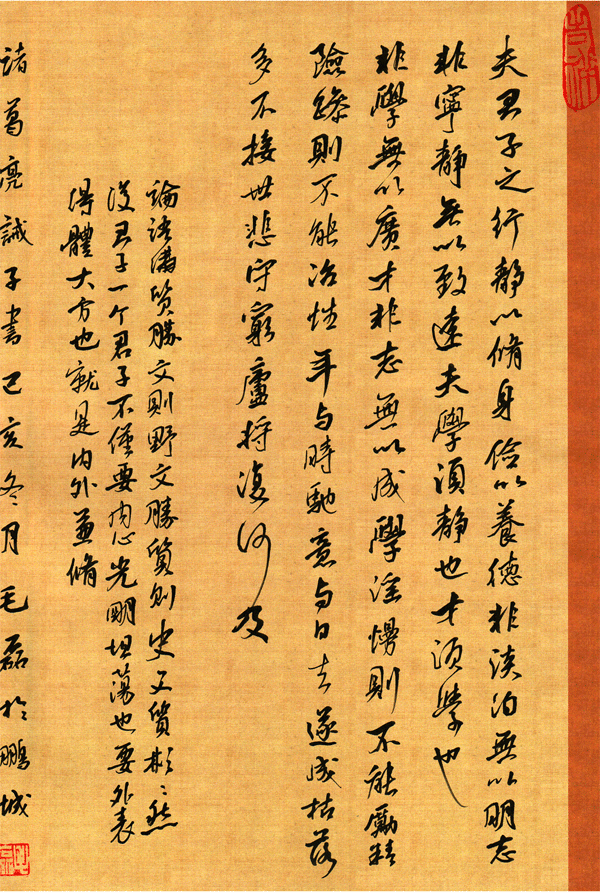 夫君子之行靜以脩身儉以養德非淡泊無以明志
非寧靜無以致遠夫學須靜也才須學也
非學無以廣才非志無以成學淫慢則不能勵精
險躁則不能冶性年与時馳意与日去遂成枯落
多不接世悲守窮廬將復何及
論語講質勝文則野文勝質則史文質彬彬然
後君子一个君子不僅要內心光明坦蕩也要外表
得體大方也就是內外兼脩
諸葛亮誡子書己亥冬月毛磊於鵬城